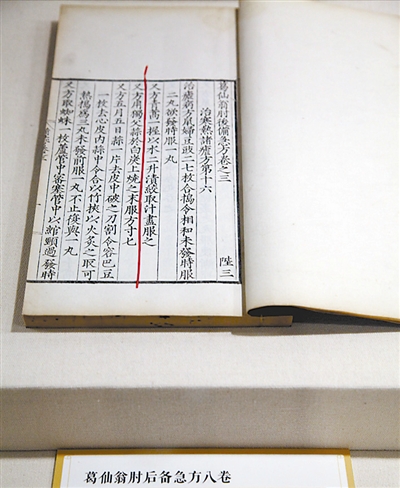 葛仙翁肘後備急方卷之三
陛三
治寒熱諸瘧方第十六
治瘧病方鼠婦豆豉二七枚合搗令相和未發時服
二丸欲發時服一丸
又方青蒿一握以水二升漬絞取汁盡服之
又方用獨父蒜於白炭上燒之末服方寸匕
又方五月五日蒜一片去皮中破之刀割令容巴豆
一枚去心皮內蒜中令合以竹挾以火炙之取可
熱搗為三丸未發前服一丸不止復與一丸
又方取蜘蛛一枚蘆管中密塞管中以綰頸過發時
葛仙翁肘后备急方八卷